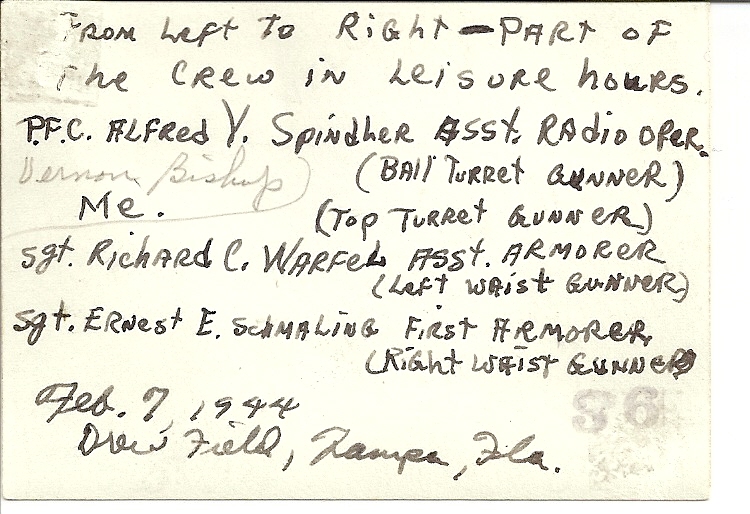 From Left To Right - Part of
The Crew in Leisure hours.
P.F.C. Alfred V. Spindler Asst. Radio Oper.
(Ball Turret Gunner)
Vernon Bishop)
Me.
(Top Turret Gunner)
Sgt. Richard C. Warfel Asst. Armorer
(Left Waist Gunner)
Sgt. Ernest E. Schmaling First Armorer
(Right Waist Gunner)
Feb. 7, 1944
36
Drew Field, Tampa, Fla.